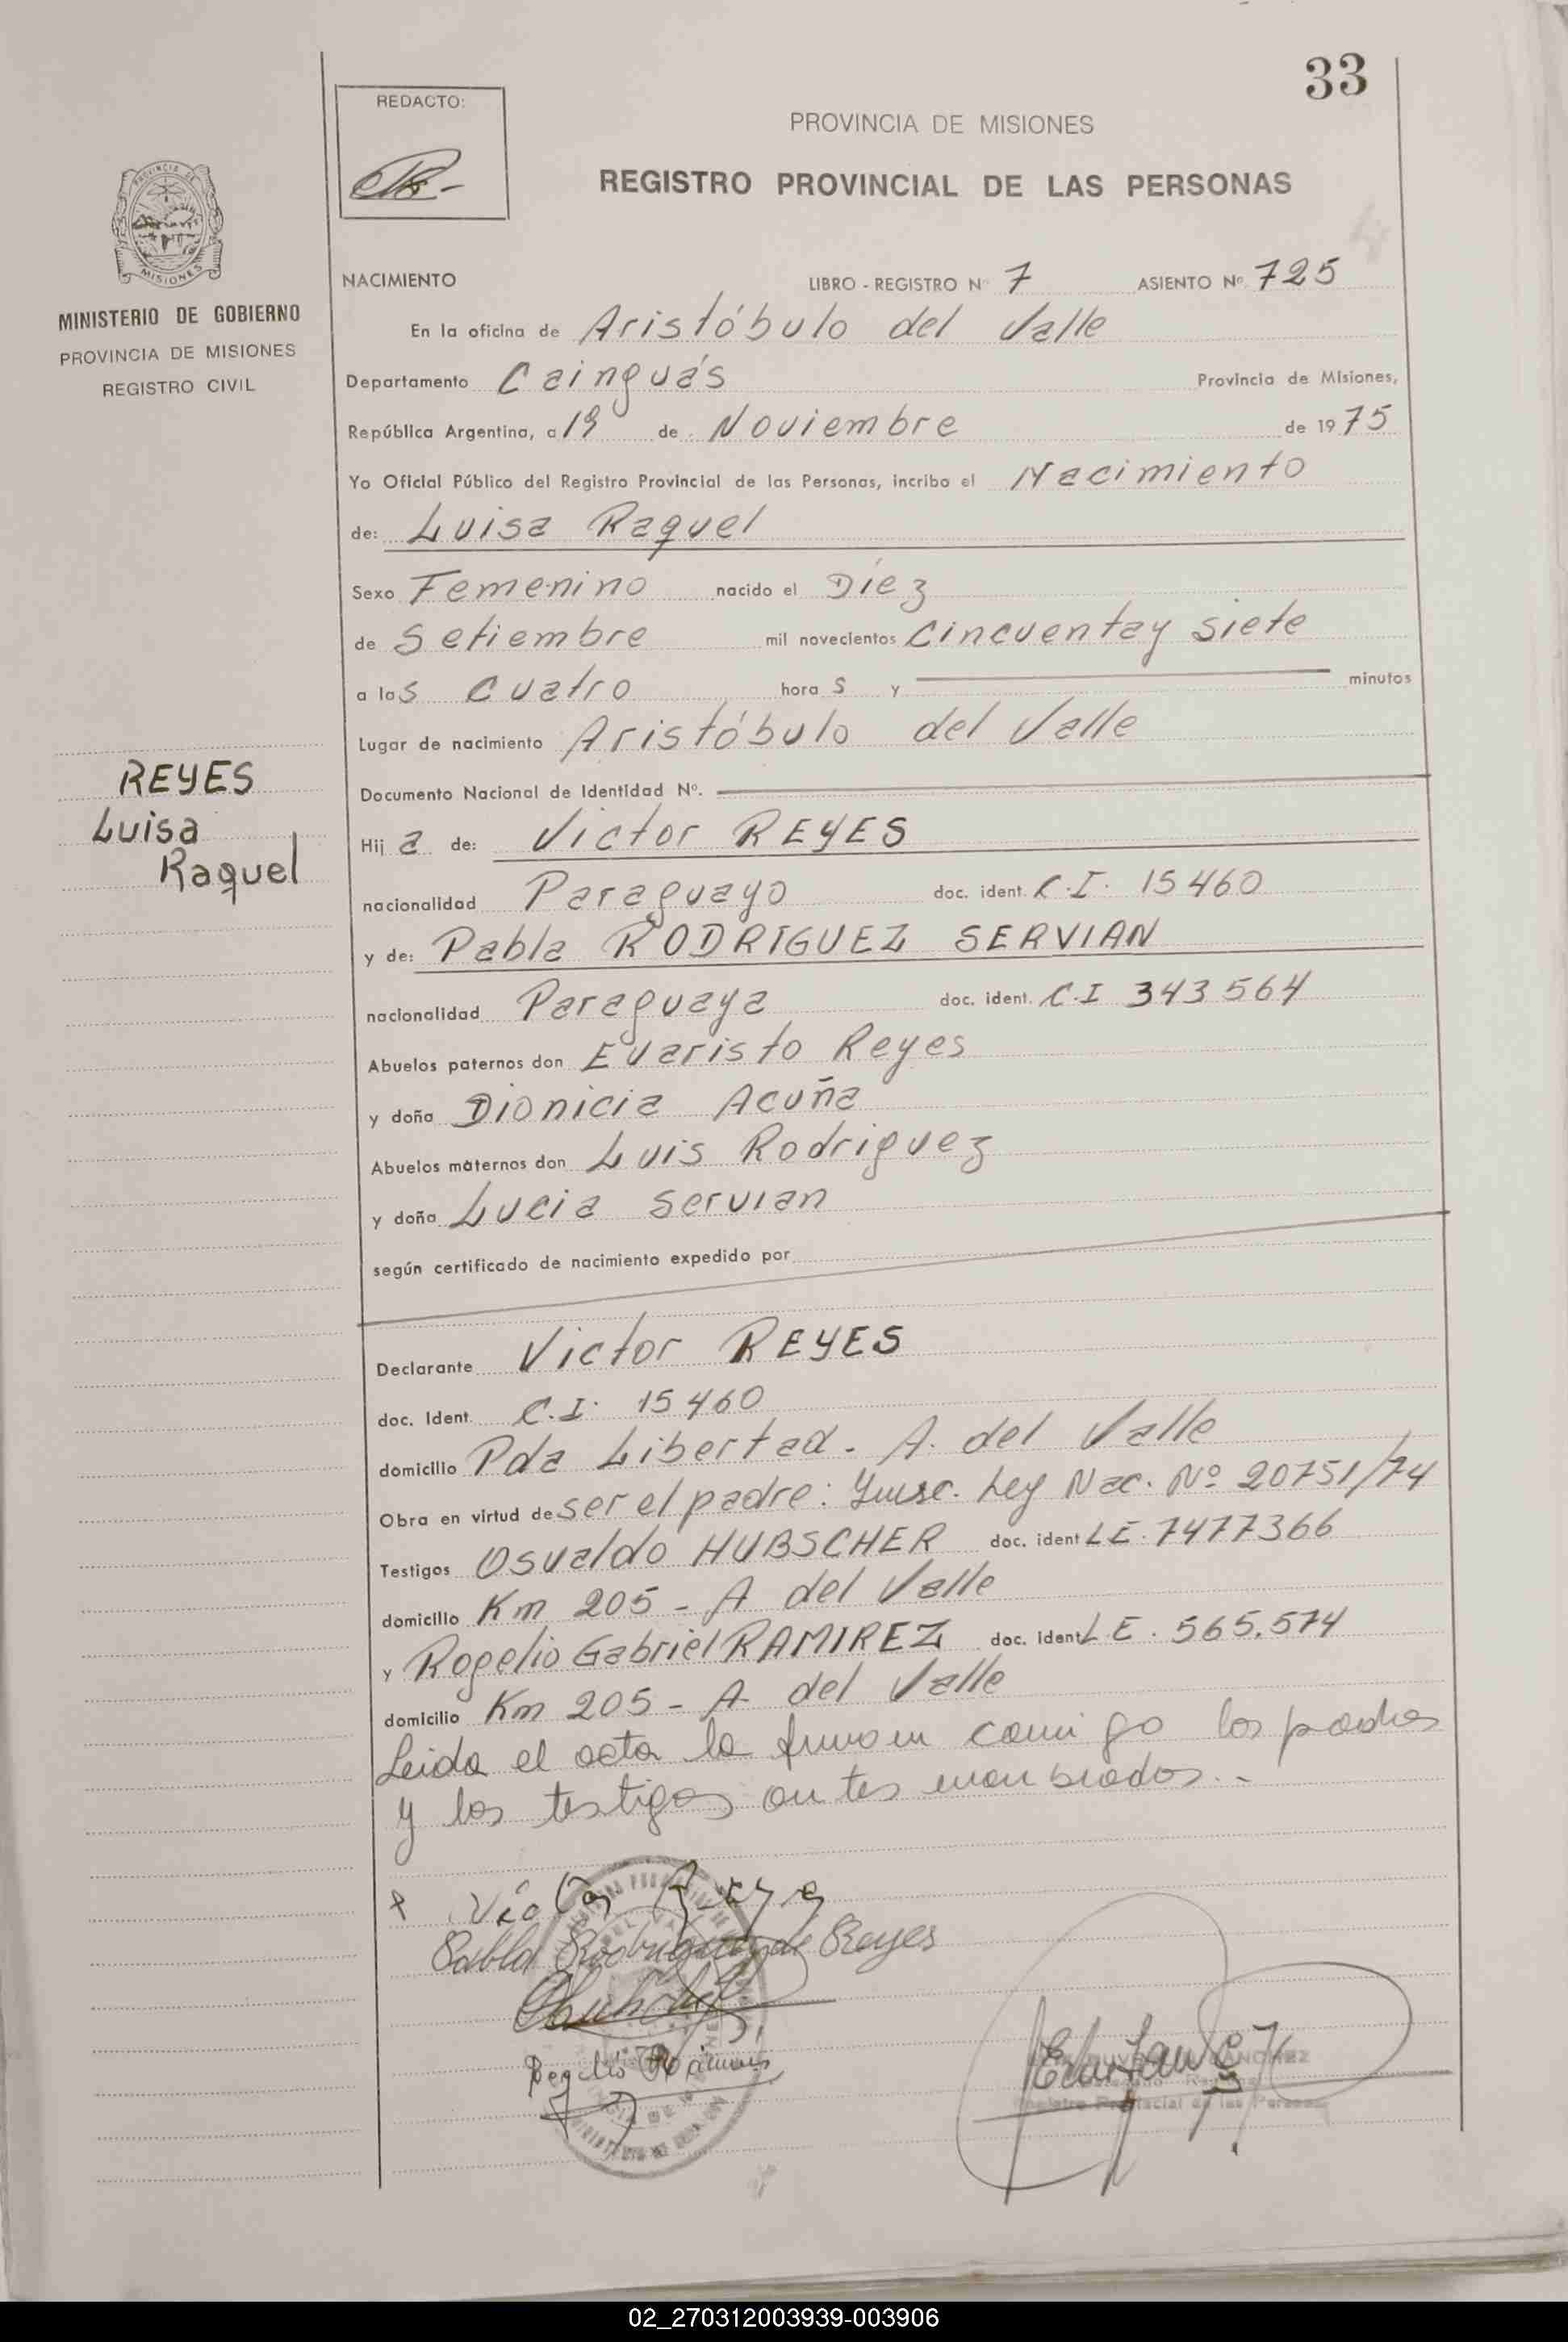 33
REDACTO:
PROVINCIA DE MISIONES
REGISTRO PROVINCIAL DE LAS PERSONAS
PROVINCIA DE
MISIONES
MINISTERIO DE GOBIERNO
PROVINCIA DE MISIONES
REGISTRO CIVIL
NACIMIENTO LIBRO - REGISTRO N° 7 ASIENTO Nº 725
En la oficina de Aristóbulo del Valle
Departamento Cainguás Provincia de Misiones,
República Argentina, a 19 de Noviembre de 1975
Yo Oficial Público del Registro Provincial de las Personas, incribo el Nacimiento
de: Luisa Raquel
Sexo Femenino nacido el Díez
de Setiembre mil novecientos cincuentay siete
a las cuatro hora s y minutos
Lugar de nacimiento Aristóbulo del Valle
REYES
Luisa
Raquel
Documento Nacional de Identidad Nº.
Hij a de: Victor REYES
nacionalidad Paraguayo doc. ident. C.I. 15460
y de: Pabla RODRIGUEZ SERVIAN
nacionalidad Paraguaya doc. ident. C.I 343564
Abuelos paternos don Evaristo Reyes
y doña Dionicia Acuña
Abuelos maternos don Luis Rodriguez
y doña Lucia Servian
según certificado de nacimiento expedido por
Declarante Victor REYES
doc. Ident. C.I. 15460
domicilio Pda Libertad. A. del Valle
Obra en virtud de ser el padre: Ynsc. Ley Nac. Nº 20751/74
Testigos Osvaldo HUBSCHER doc. ident LE. 7477366
domicilio Km 205 - A del Valle
y Rogelio Gabriel RAMIREZ doc. ident LE. 565.574
domicilio Km 205 - A del Valle
Leida el acta la firman conmigo los padres
y los testigos antes nombrados.-
Victor Reyes
Pabla Rodriguez de Reyes
SANCHEZ
Registro Provincial de las Personas
02_270312003939-003906